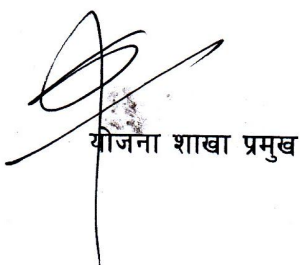 योजना शाखा प्रमुख